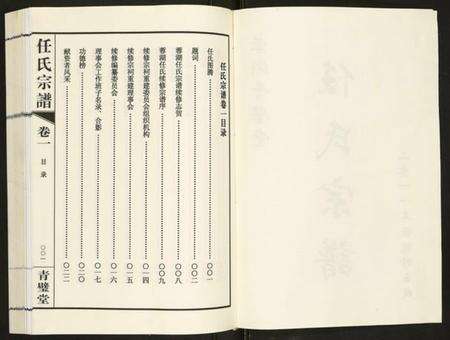 任氏宗譜卷一目录
任氏图腾……〇〇一
题词……〇〇二
蓉湖任氏宗谱续修志贺……〇〇八
蓉湖任氏续修宗谱序……〇〇九
续修宗祠重建委员会组织机构……〇一四
续修宗祠重建理事会……〇一五
续修编纂委员会……〇一六
理事会工作班子名录、合影……〇一七
功德榜……〇二〇
献资者风采……〇二二
任氏宗譜
卷一
目录
〇〇一
青璧堂
任氏宗譜